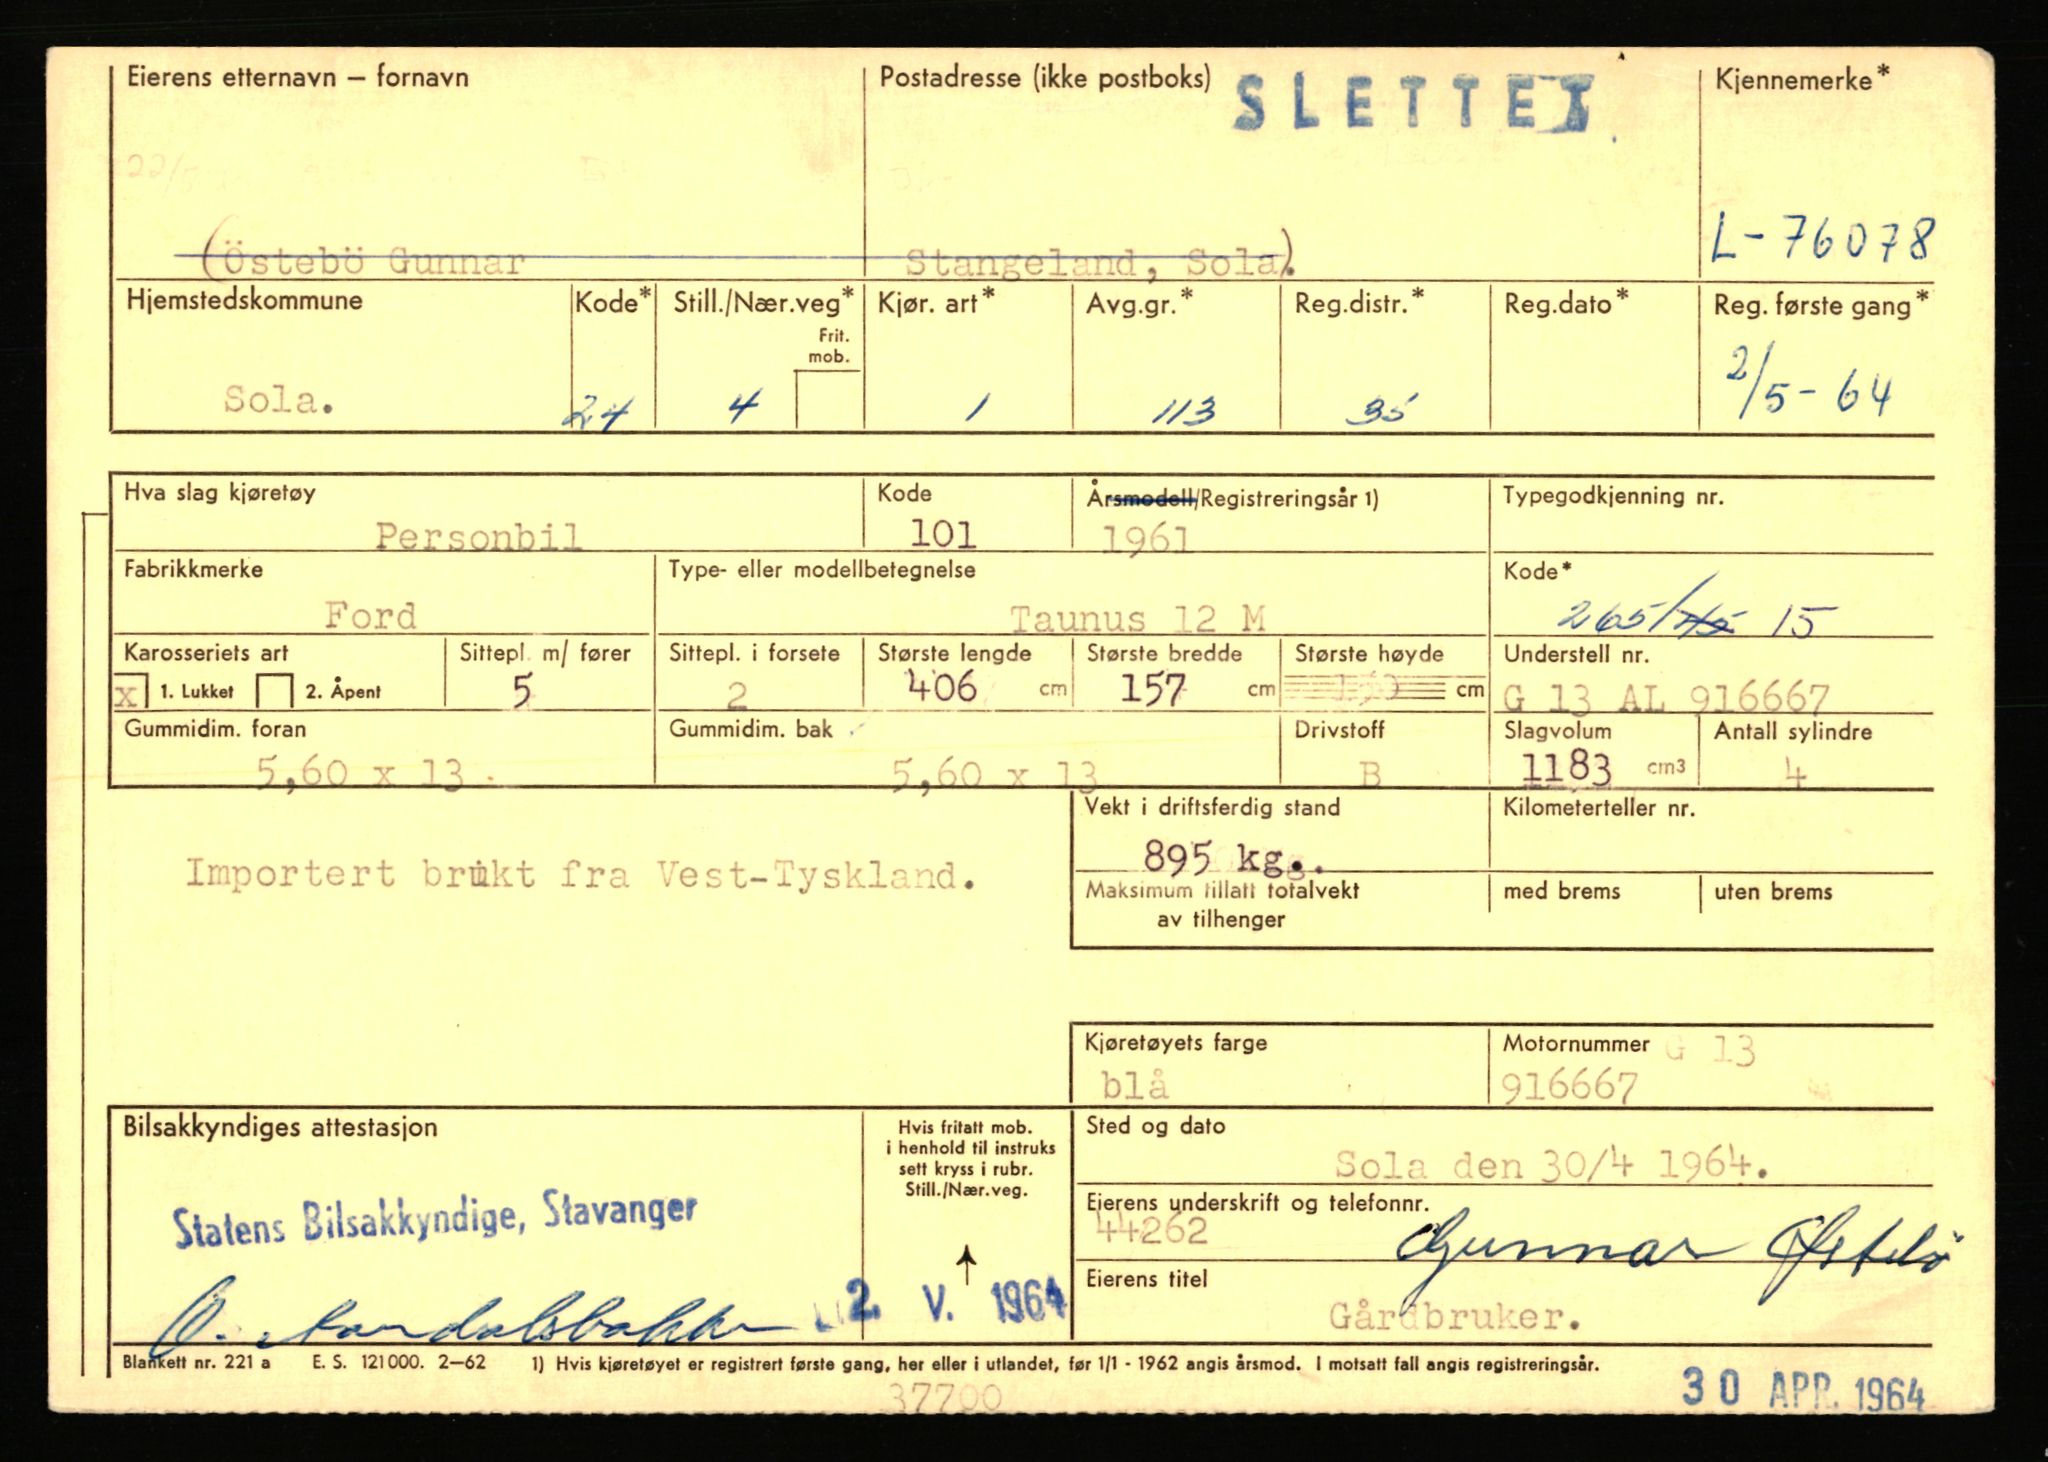 Eierens etternavn – fornavn
Postadresse (ikke postboks)
SLETTET
Kjennemerke*
(Östebö Gunnar
Stangeland, Sola).
L-76078
Hjemstedskommune
Kode*
Still./Nær.veg*
Frit.
mob.
Kjør. art*
Avg.gr.*
Reg.distr.*
Reg.dato*
Reg. første gang*
Sola.
24
4
1
113
35
2/5-64
Hva slag kjøretøy
Kode
Årsmodell/Registreringsår 1)
Typegodkjenning nr.
Personbil
101
1961
Fabrikkmerke
Type- eller modellbetegnelse
Kode*
Ford
Taunus 12 M
265/45 15
Karosseriets art
Sittepl. m/ fører
Sittepl. i forsete
Største lengde
Største bredde
Største høyde
Understell nr.
x 1. Lukket 2. Åpent
5
2
406 cm
157 cm
cm
G 13 AL 916667
Gummidim. foran
Gummidim. bak
Drivstoff
Slagvolum
Antall sylindre
5,60 x 13
5,60 x 13
B
1183 cm3
4
Vekt i driftsferdig stand
Kilometerteller nr.
895 kg.
Importert brukt fra Vest-Tyskland.
Maksimum tillatt totalvekt
av tilhenger
med brems
uten brems
Kjøretøyets farge
Motornummer G 13
blå
916667
Bilsakkyndiges attestasjon
Hvis fritatt mob.
i henhold til instruks
sett kryss i rubr.
Still./Nær.veg.
Sted og dato
Sola den 30/4 1964.
Statens Bilsakkyndige, Stavanger
Eierens underskrift og telefonnr.
44262
Gunnar Østebö
Eierens titel
2. V. 1964
Gårdbruker.
Blankett nr. 221 a E. S. 121000. 2–62 1) Hvis kjøretøyet er registrert første gang, her eller i utlandet, før 1/1 - 1962 angis årsmod. I motsatt fall angis registreringsår.
37700
30 APR. 1964